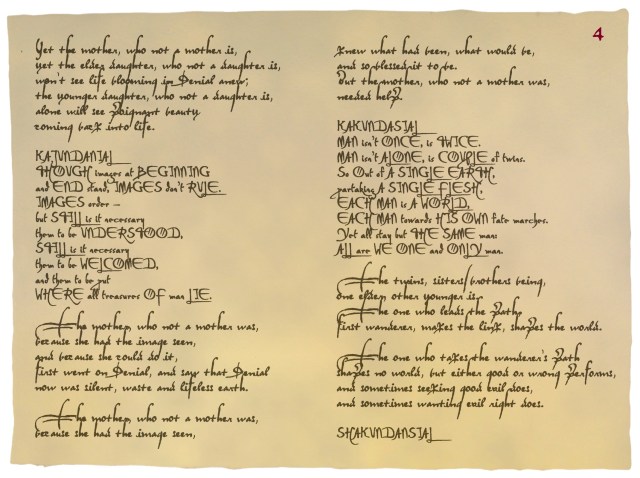 4
Yet the mother, who not a mother is,
yet the elder daughter, who not a daughter is,
won't see life blooming in Denial anew;
the younger daughter, who not a daughter is,
alone will see poignant beauty
coming back into life.
THOUGH images at BEGINNING
and END stand, IMAGES don't RULE.
IMAGES order –
but STILL is it necessary
them to be UNDERSTOOD,
STILL is it necessary
them to be WELCOMED,
and them to be put
WHERE all treasures OF man LIE.
The mother, who not a mother was,
because she had the image seen,
and because she could do it,
first went on Denial, and saw that Denial
now was silent, waste and lifeless earth.
The mother, who not a mother was,
because she had the image seen,
knew what had been, what would be,
and so blessed it to be.
But the mother, who not a mother was,
needed help.
KAKUNDASIAL
MAN isn't ONCE, is TWICE.
MAN isn't ALONE, is COUPLE of twins.
So Out of A SINGLE EARTH,
partaking A SINGLE FLESH,
EACH MAN is A WORLD,
EACH MAN towards HIS OWN fate marches.
Not all stay but THE SAME man:
ALL are WE ONE and ONLY man.
The twins, sisters/brothers being,
one elder, other younger is.
The one who leads the path,
first wanderer, makes the link, shapes the world.
The one who takes the wanderer's path
shapes no world, but either good or wrong performs,
and sometimes seeking good evil does,
and sometimes wanting evil right does.
SHAKUNDANSIAL